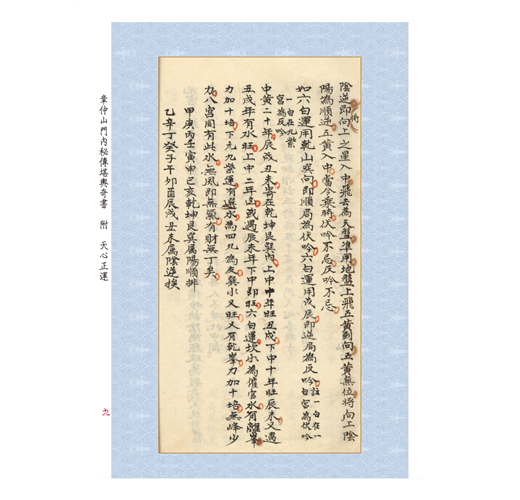 陰逆即向上之星入中飛去為天盤準用地盤上飛五黃到向五黃無位將向上陰
陽為順逆五黃入中當令乘時伏吟不忌反吟不忌
如六白運用乾山巽向即順局為伏吟六白運用戌辰即逆局為反吟註一白在一白宮為伏吟
一白在九紫宮為反吟
中黃二十年辰戌丑未寄在乾坤艮巽內上中十年旺丑戌下中十年旺辰未又遇
丑戌年有水旺上中二年凶或遇辰未年下中即旺六白運坎水為催官水有離峯
力加十培下元九紫運有水為四九為友巽水又旺又有乾峯力加十培無峰少
力八宮間有此水無風即無氣有財無丁矣
甲庚丙壬寅申巳亥乾坤艮巽屬陽順排
乙辛丁癸子午卯酉辰戌丑未屬陰逆挨
章仲山門內秘傳堪輿奇書 附 天心正運
九